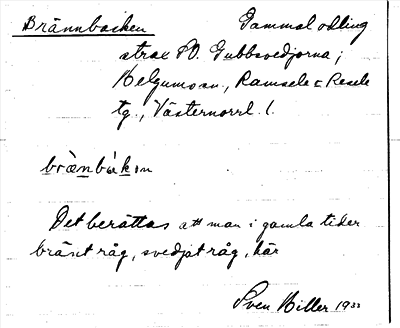 Brännbacken Gammal odling
strax SO. Gubbsvedjorna;
Helgumosn., Ramsele o Resele
tg., Västernorrl. l.
bræ̀nbák̀ən
Det berättas att man i gamla tider
bränt råg, svedjat råg, här
Sven Hiller 1933